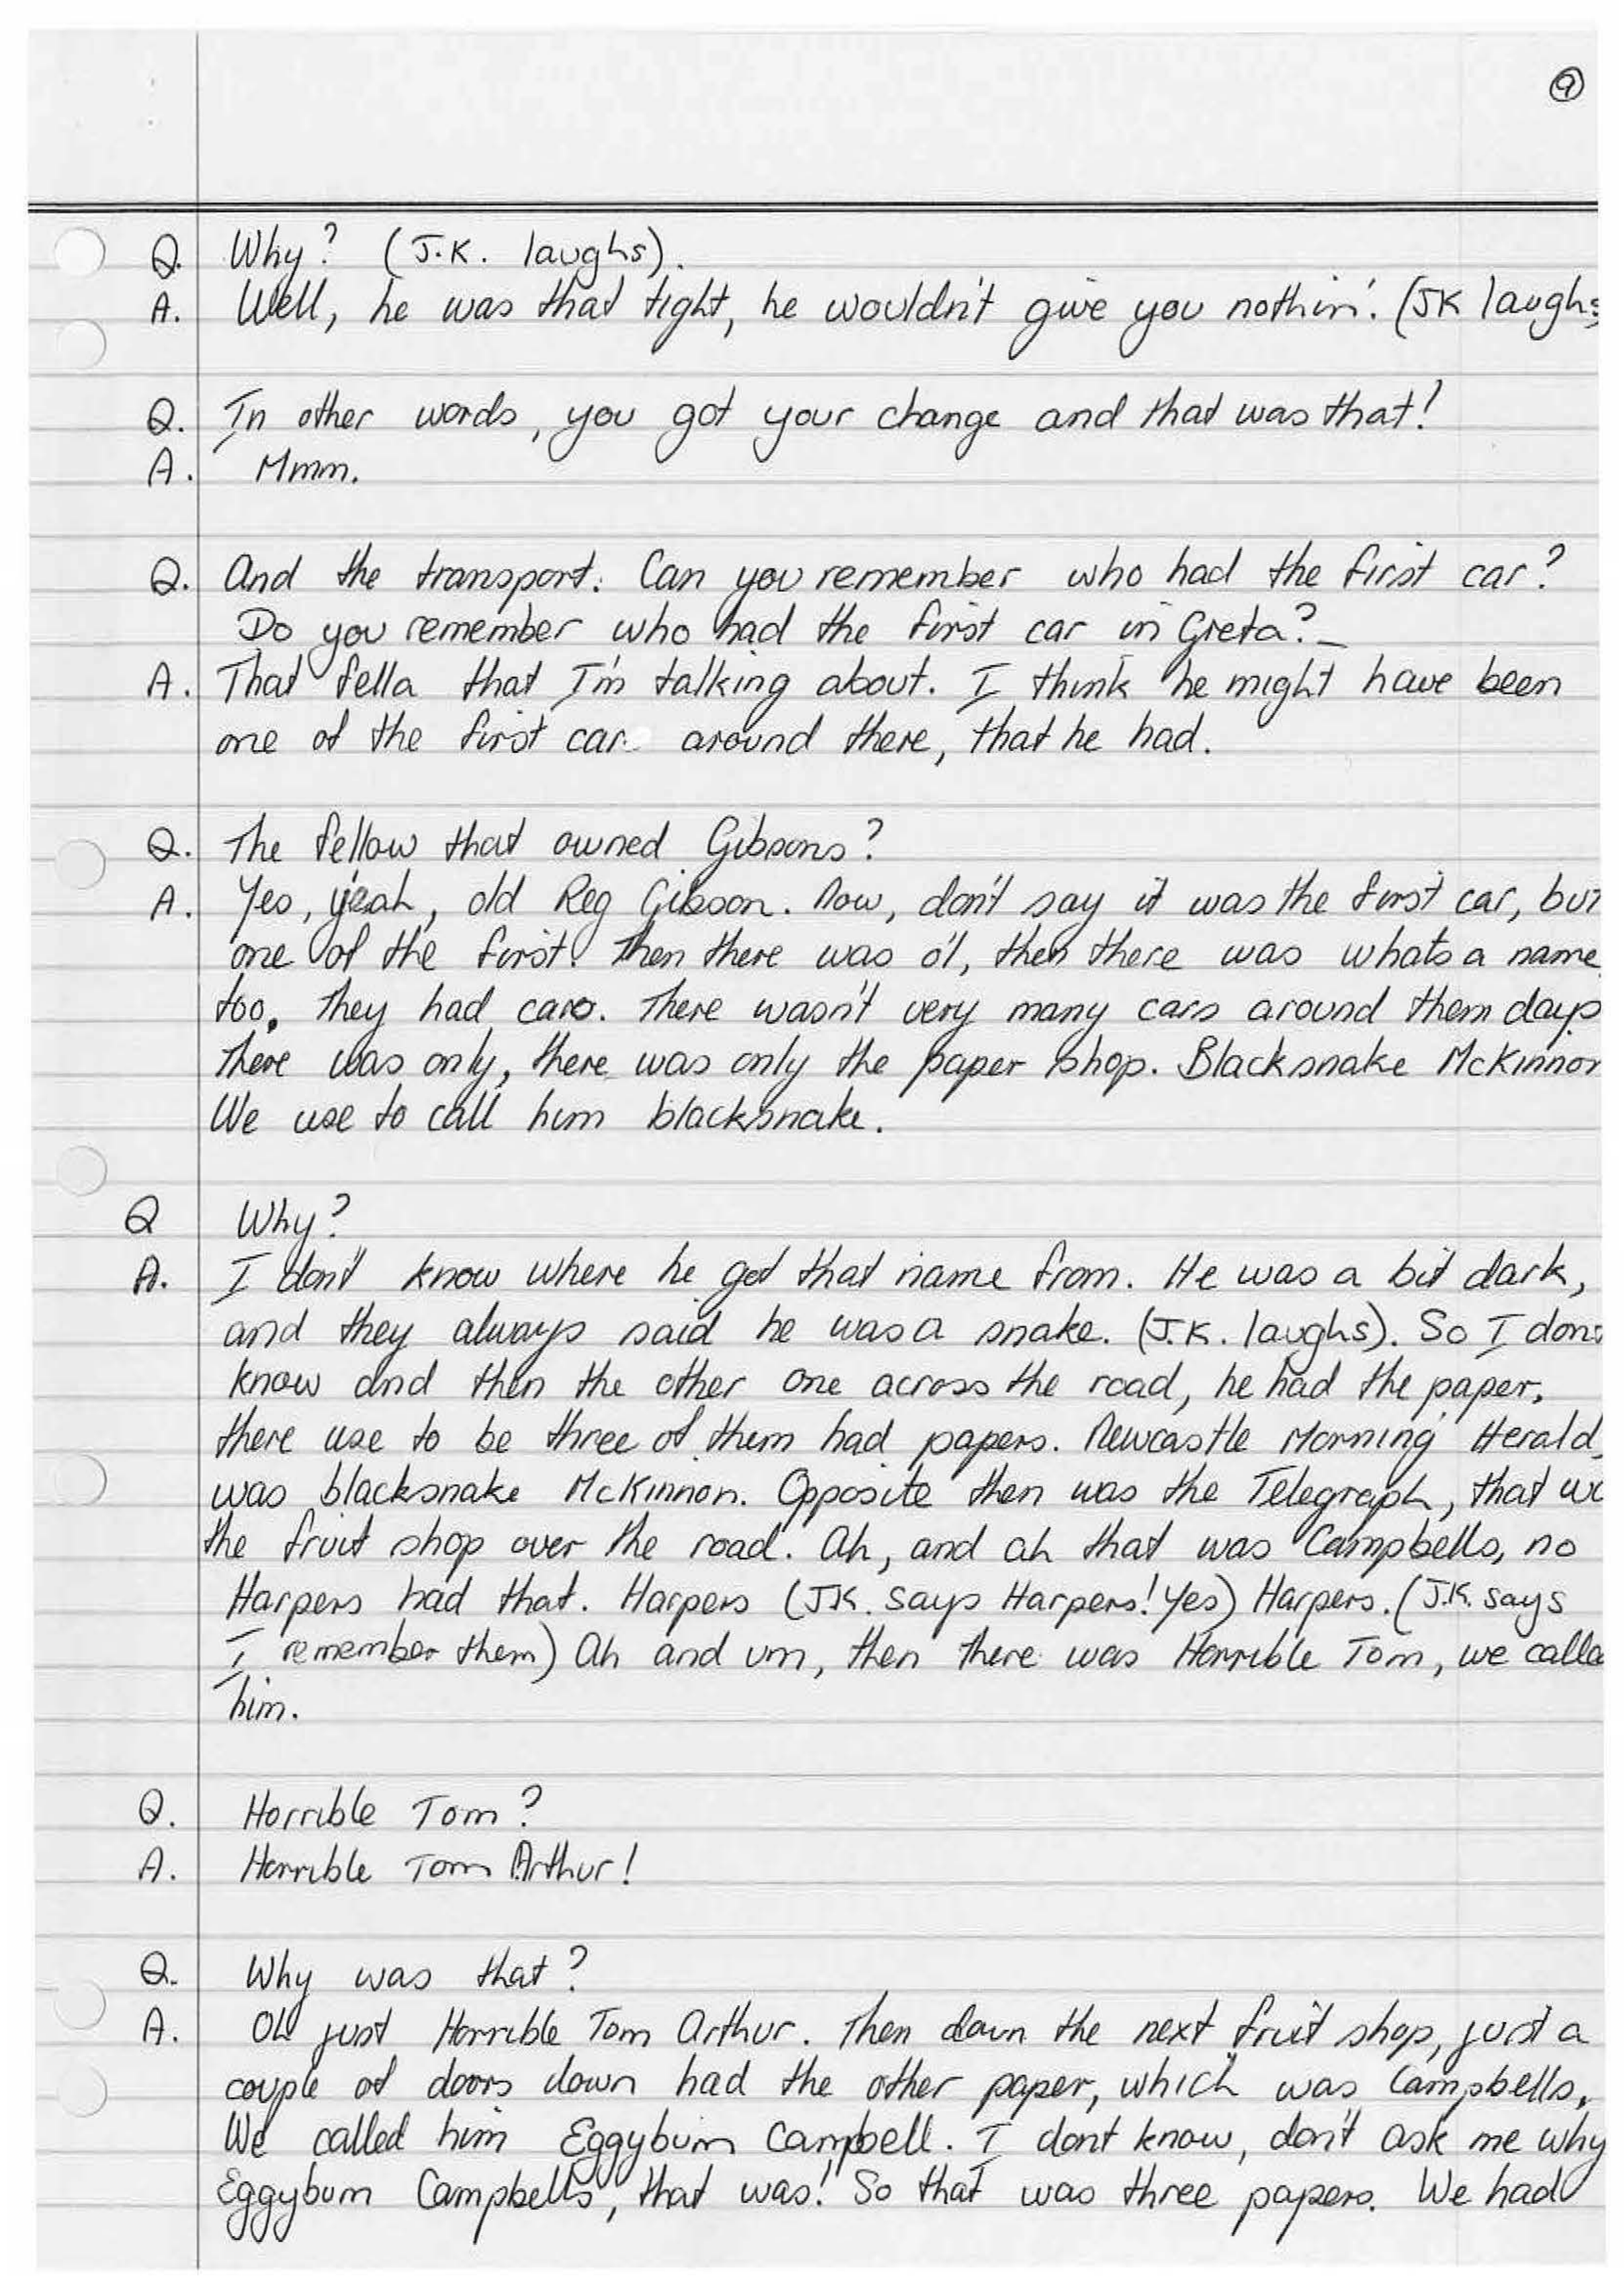 9
Q. Why? (J.K. laughs).
A. Well, he was that tight, he wouldn't give you nothin'. (JK laughs
Q. In other words, you got your change and that was that!
A. Mmm.
Q. And the transport. Can you remember who had the first car?
Do you remember who had the first car in Greta?
A. That fella that I'm talking about. I think he might have been
one of the first car around there, that he had.
Q. The fellow that owned Gibsons?
A. Yes, yeah, old Reg Gibson. Now, don't say it was the first car, but
one of the first! Then there was o'l, then there was whats a name
too. They had cars. There wasn't very many cars around them days
There was only, there was only the paper shop. Blacksnake McKinnon
We use to call him blacksnake.
Q Why?
A. I don't know where he got that name from. He was a bit dark,
and they always said he was a snake. (J.K. laughs). So I don't
know and then the other one across the road, he had the paper,
there use to be three of them had papers. Newcastle Morning Herald,
was blacksnake McKinnon. Opposite then was the Telegraph, that w
the fruit shop over the road. Ah, and ah that was Campbells, no
Harpers had that. Harpers (J.K. says Harpers! Yes) Harpers. (J.K. says
I remember them) Ah and um, then there was Horrible Tom, we calle
him.
Q. Horrible Tom?
A. Horrible Tom Arthur!
Q. Why was that?
A. Oh just Horrible Tom Arthur. Then down the next fruit shop, just a
couple of doors down had the other paper, which was Campbells,
We called him Eggybum Campbell. I dont know, don't ask me why
Eggybum Campbells, that was! So that was three papers. We had